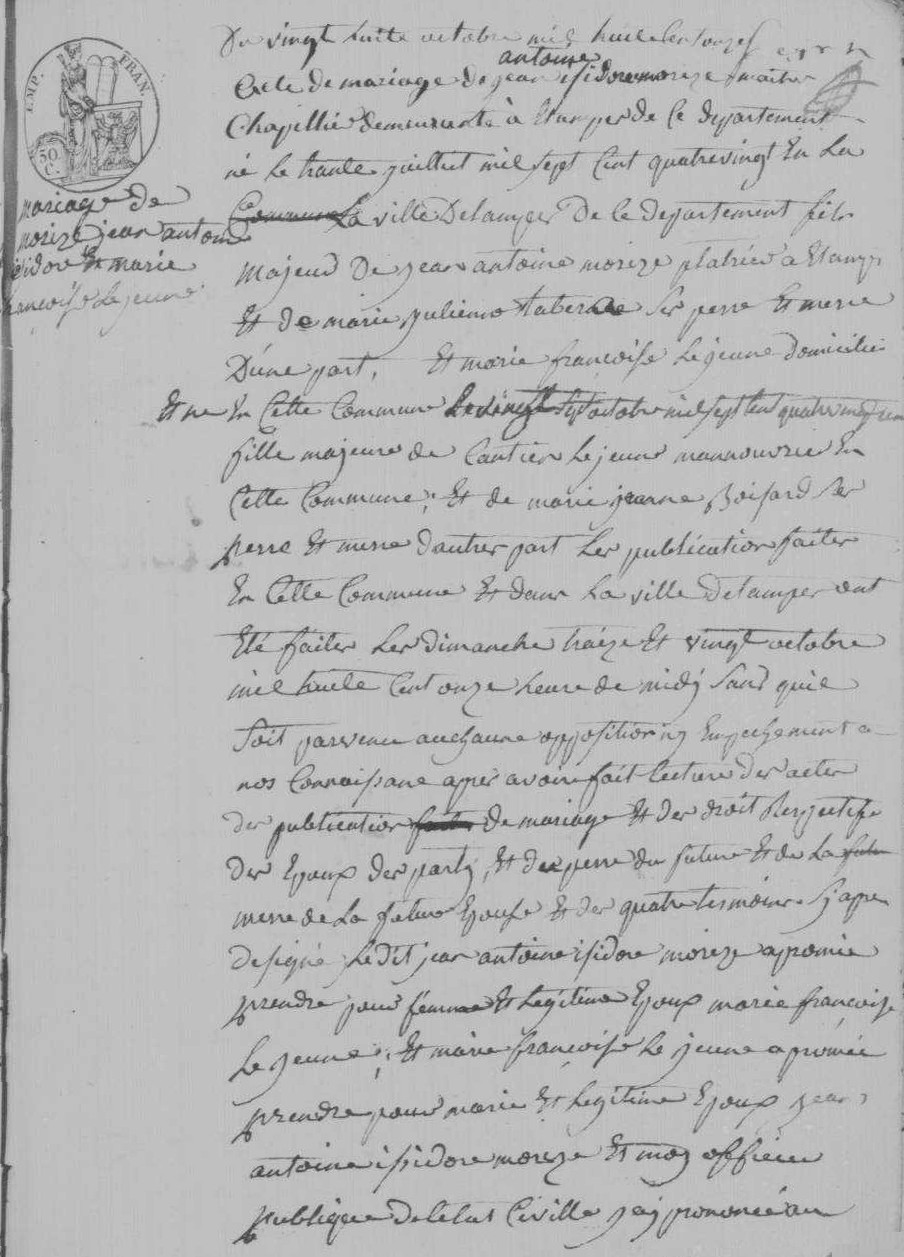 EMP. FRAN
50
C.
mariage de
morize jean antoine
isidore et marie
françoise Le jeune
Du vingt huite octobre mil huite cen onze
antoine
acte de mariage de jean isidore moreze maitre
Chapillié demeurante à Etampes de Ce departement
né Le trante juilliet mil sept Cent quatrevingt En La
Commune La ville Detampes De Ce departement fils
majeud De jean antoine moreze platrier a Etamps
Et de marie julienne ses perre Et merre
D'une part, Et marie françoise Le jeune domicilié
Et né En Cette Commune Le vingt sept octobre mil sept Cent quatre vingt
fille majeure de Cantien Le jeune mannouvrie En
Cette Commune, Et de marie jeanne Boisard ses
perre Et merre d'autres part Les publication faites
En Cette Commune Et dans La ville Detampes ont
Eté faites Les dimanche traize Et vingt octobre
mil huite Cent onze heure de midy Sans quil
Soit parvenu auchaune opposition ny Empechement a
nos Connaissane apres avoir fait Lecture des actes
des publication faite De mariage Et des droit Respectife
des Epoux des party, Et des perre du future Et de La futu
merre de La future Epouse Et des quatre tesmoins Sy apre
designé Ledit jean antoine isidore moreze a promie
prendre pour femme Et Legitime Epoux marie françoise
Le jeune, Et marie françoise Le jeune a promie
prendre pour marie Et Legitime Epoux jean
antoine isidore moreze Et moy officier
publique De Letat Civille jay prononcé au